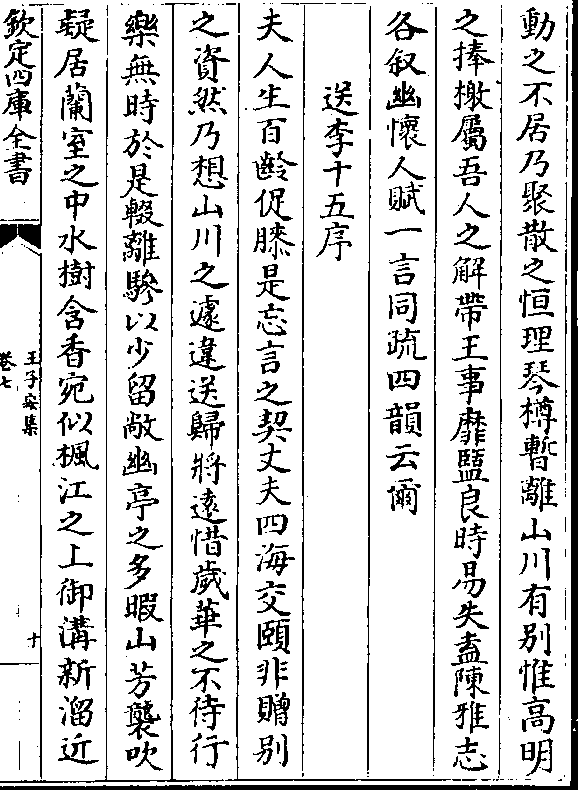 動之不居乃聚散之恒理琴樽暫離山川有別惟高明
之捧檄屬吾人之解帶王事靡盬良時易失盍陳雅志
各叙幽懷人賦一言同疏四韻云爾
送李十五序
夫人生百齡促膝是忘言之契丈夫四海交頤非贈别
之資然乃想山川之遽違送歸將逺惜歲華之不待行
樂無時於是輟離驂以少留敞幽亭之多暇山芳襲吹
疑居蘭室之中水樹含香宛似楓江之上御溝新溜近
欽定四庫全書
王子安集
卷七
十